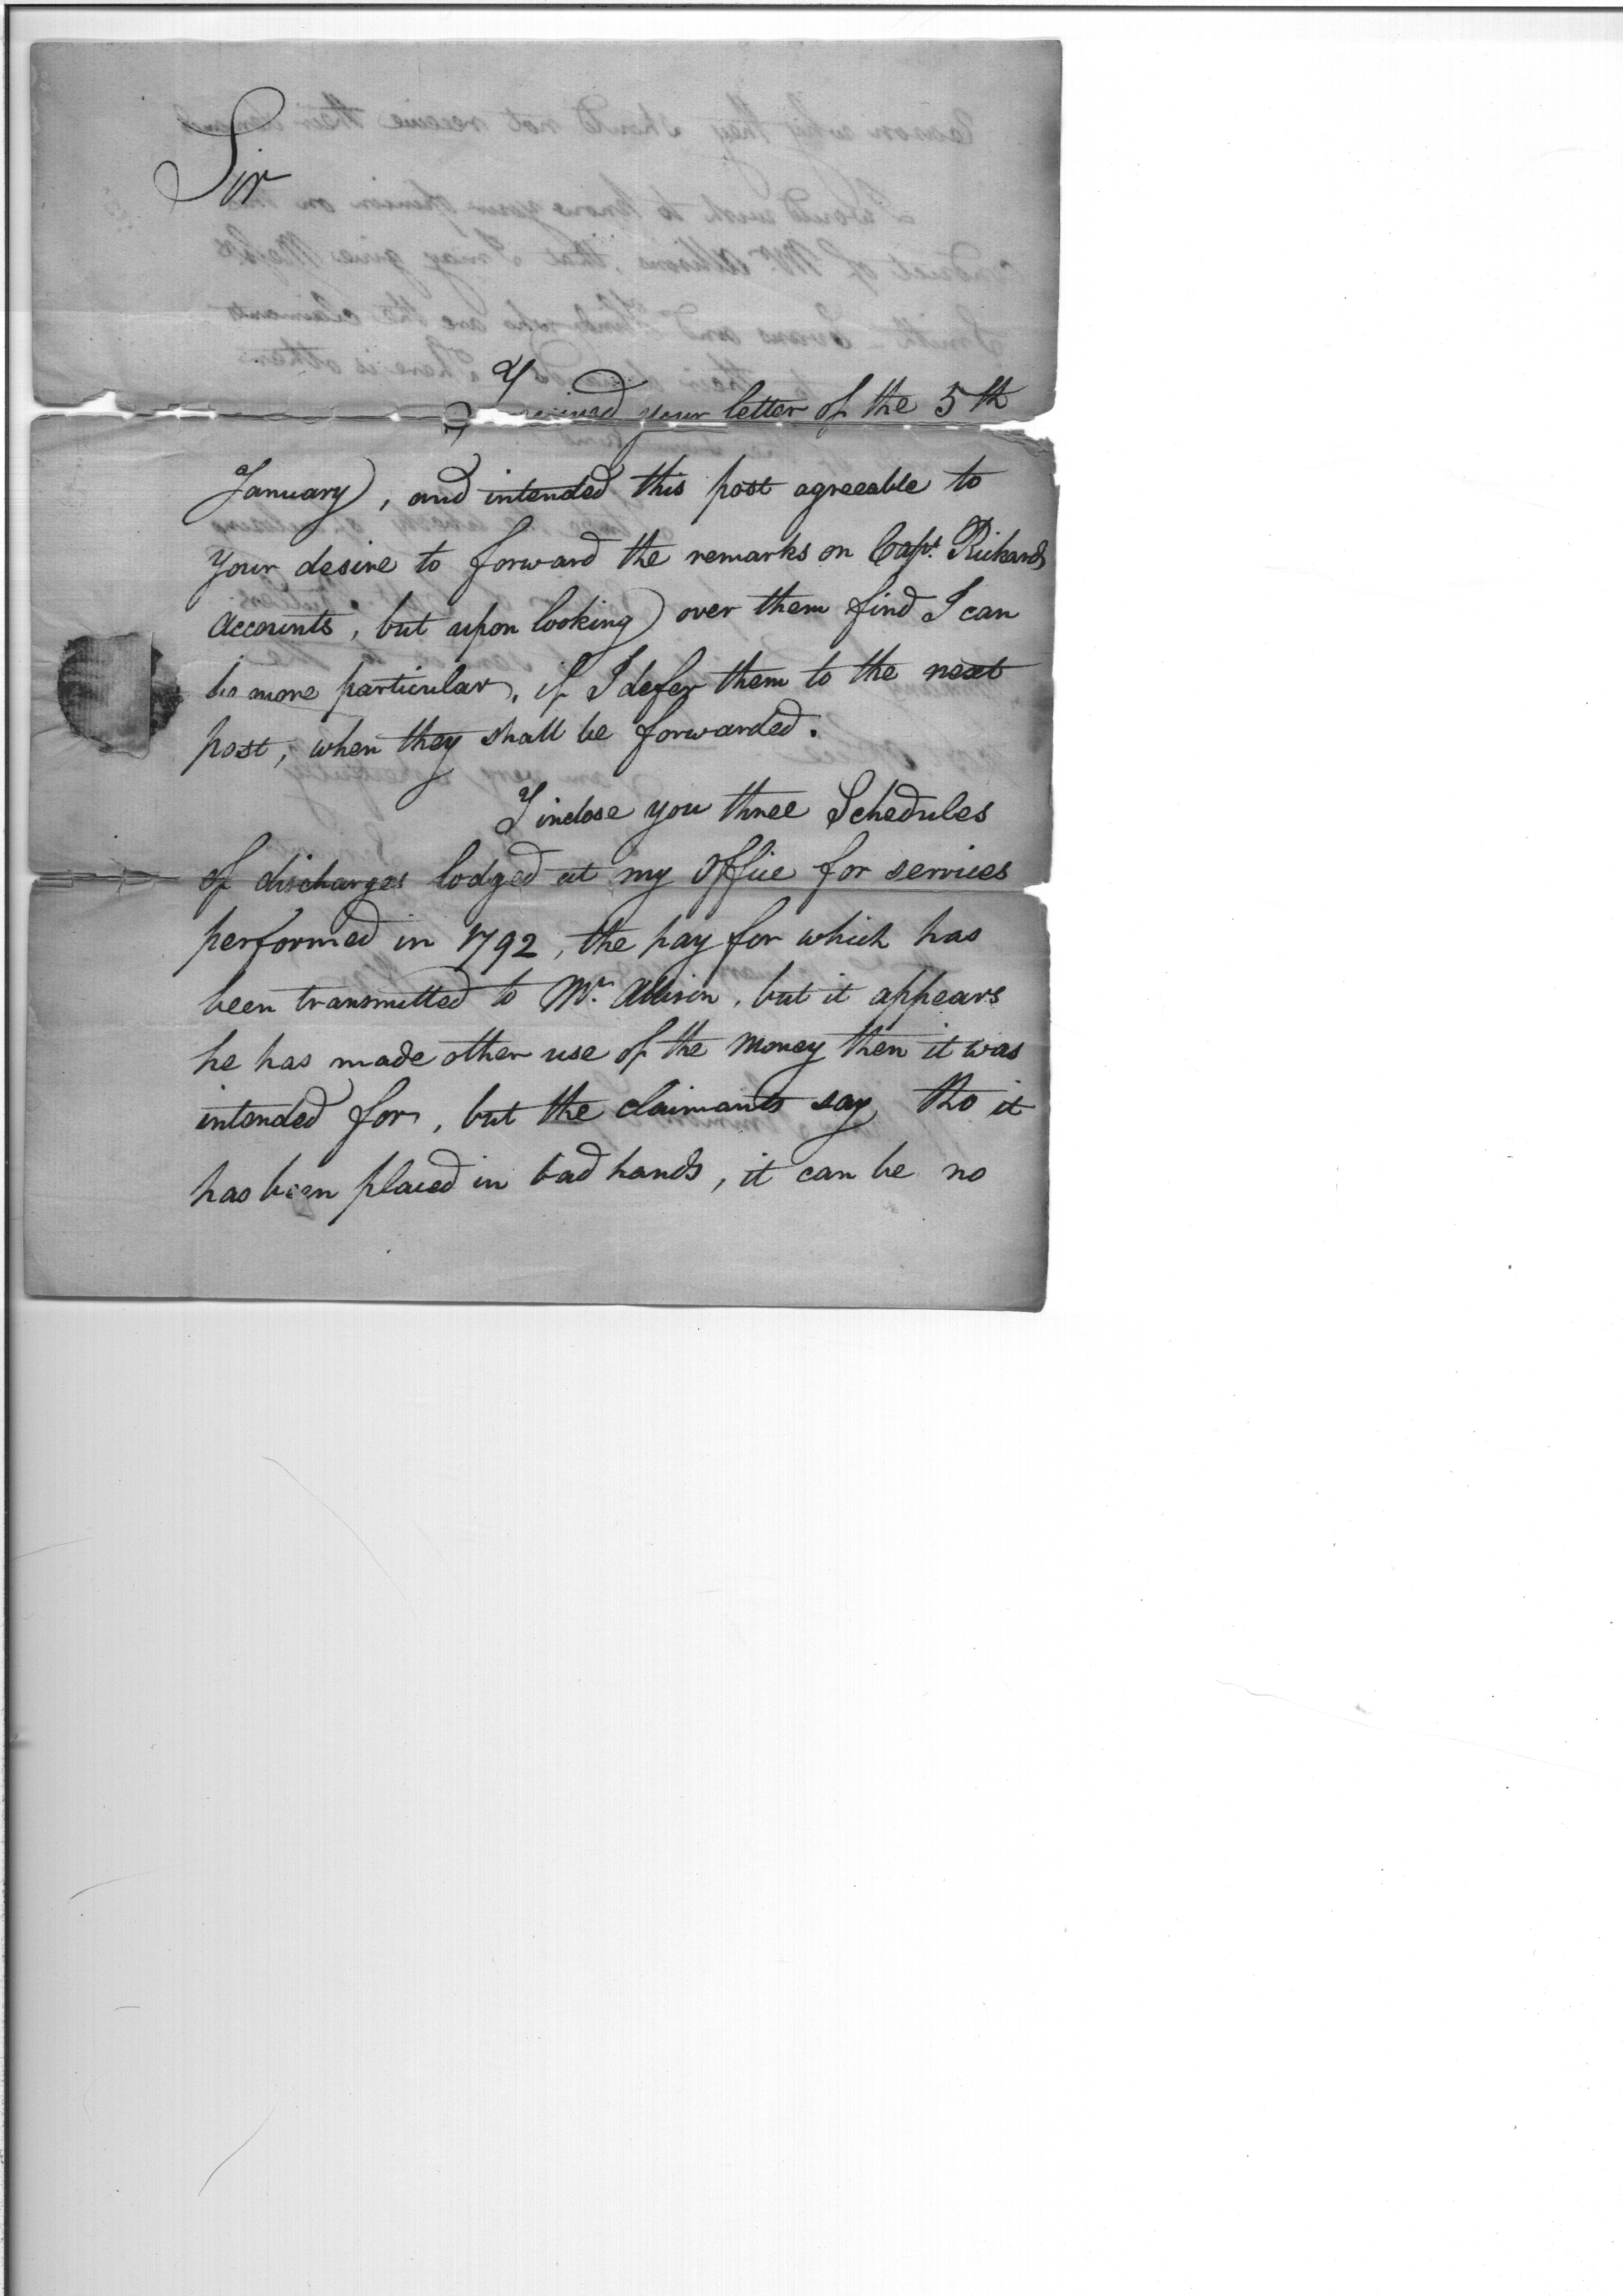 Sir
I received your letter of the 5th
January, and intended this post agreeable to
your desire to forward the remarks on Capt. Richards
accounts, but upon looking over them find I can
be more particular, if I defer them to the next
post, when they shall be forwarded.
I inclose you three Schedules
of discharges lodged at my office for services
performed in 1792, the pay for which has
been transmitted to Mr. Allison, but it appears
he has made other use of the money then it was
intended for, but the claimants say tho it
has been placed in bad hands, it can be no